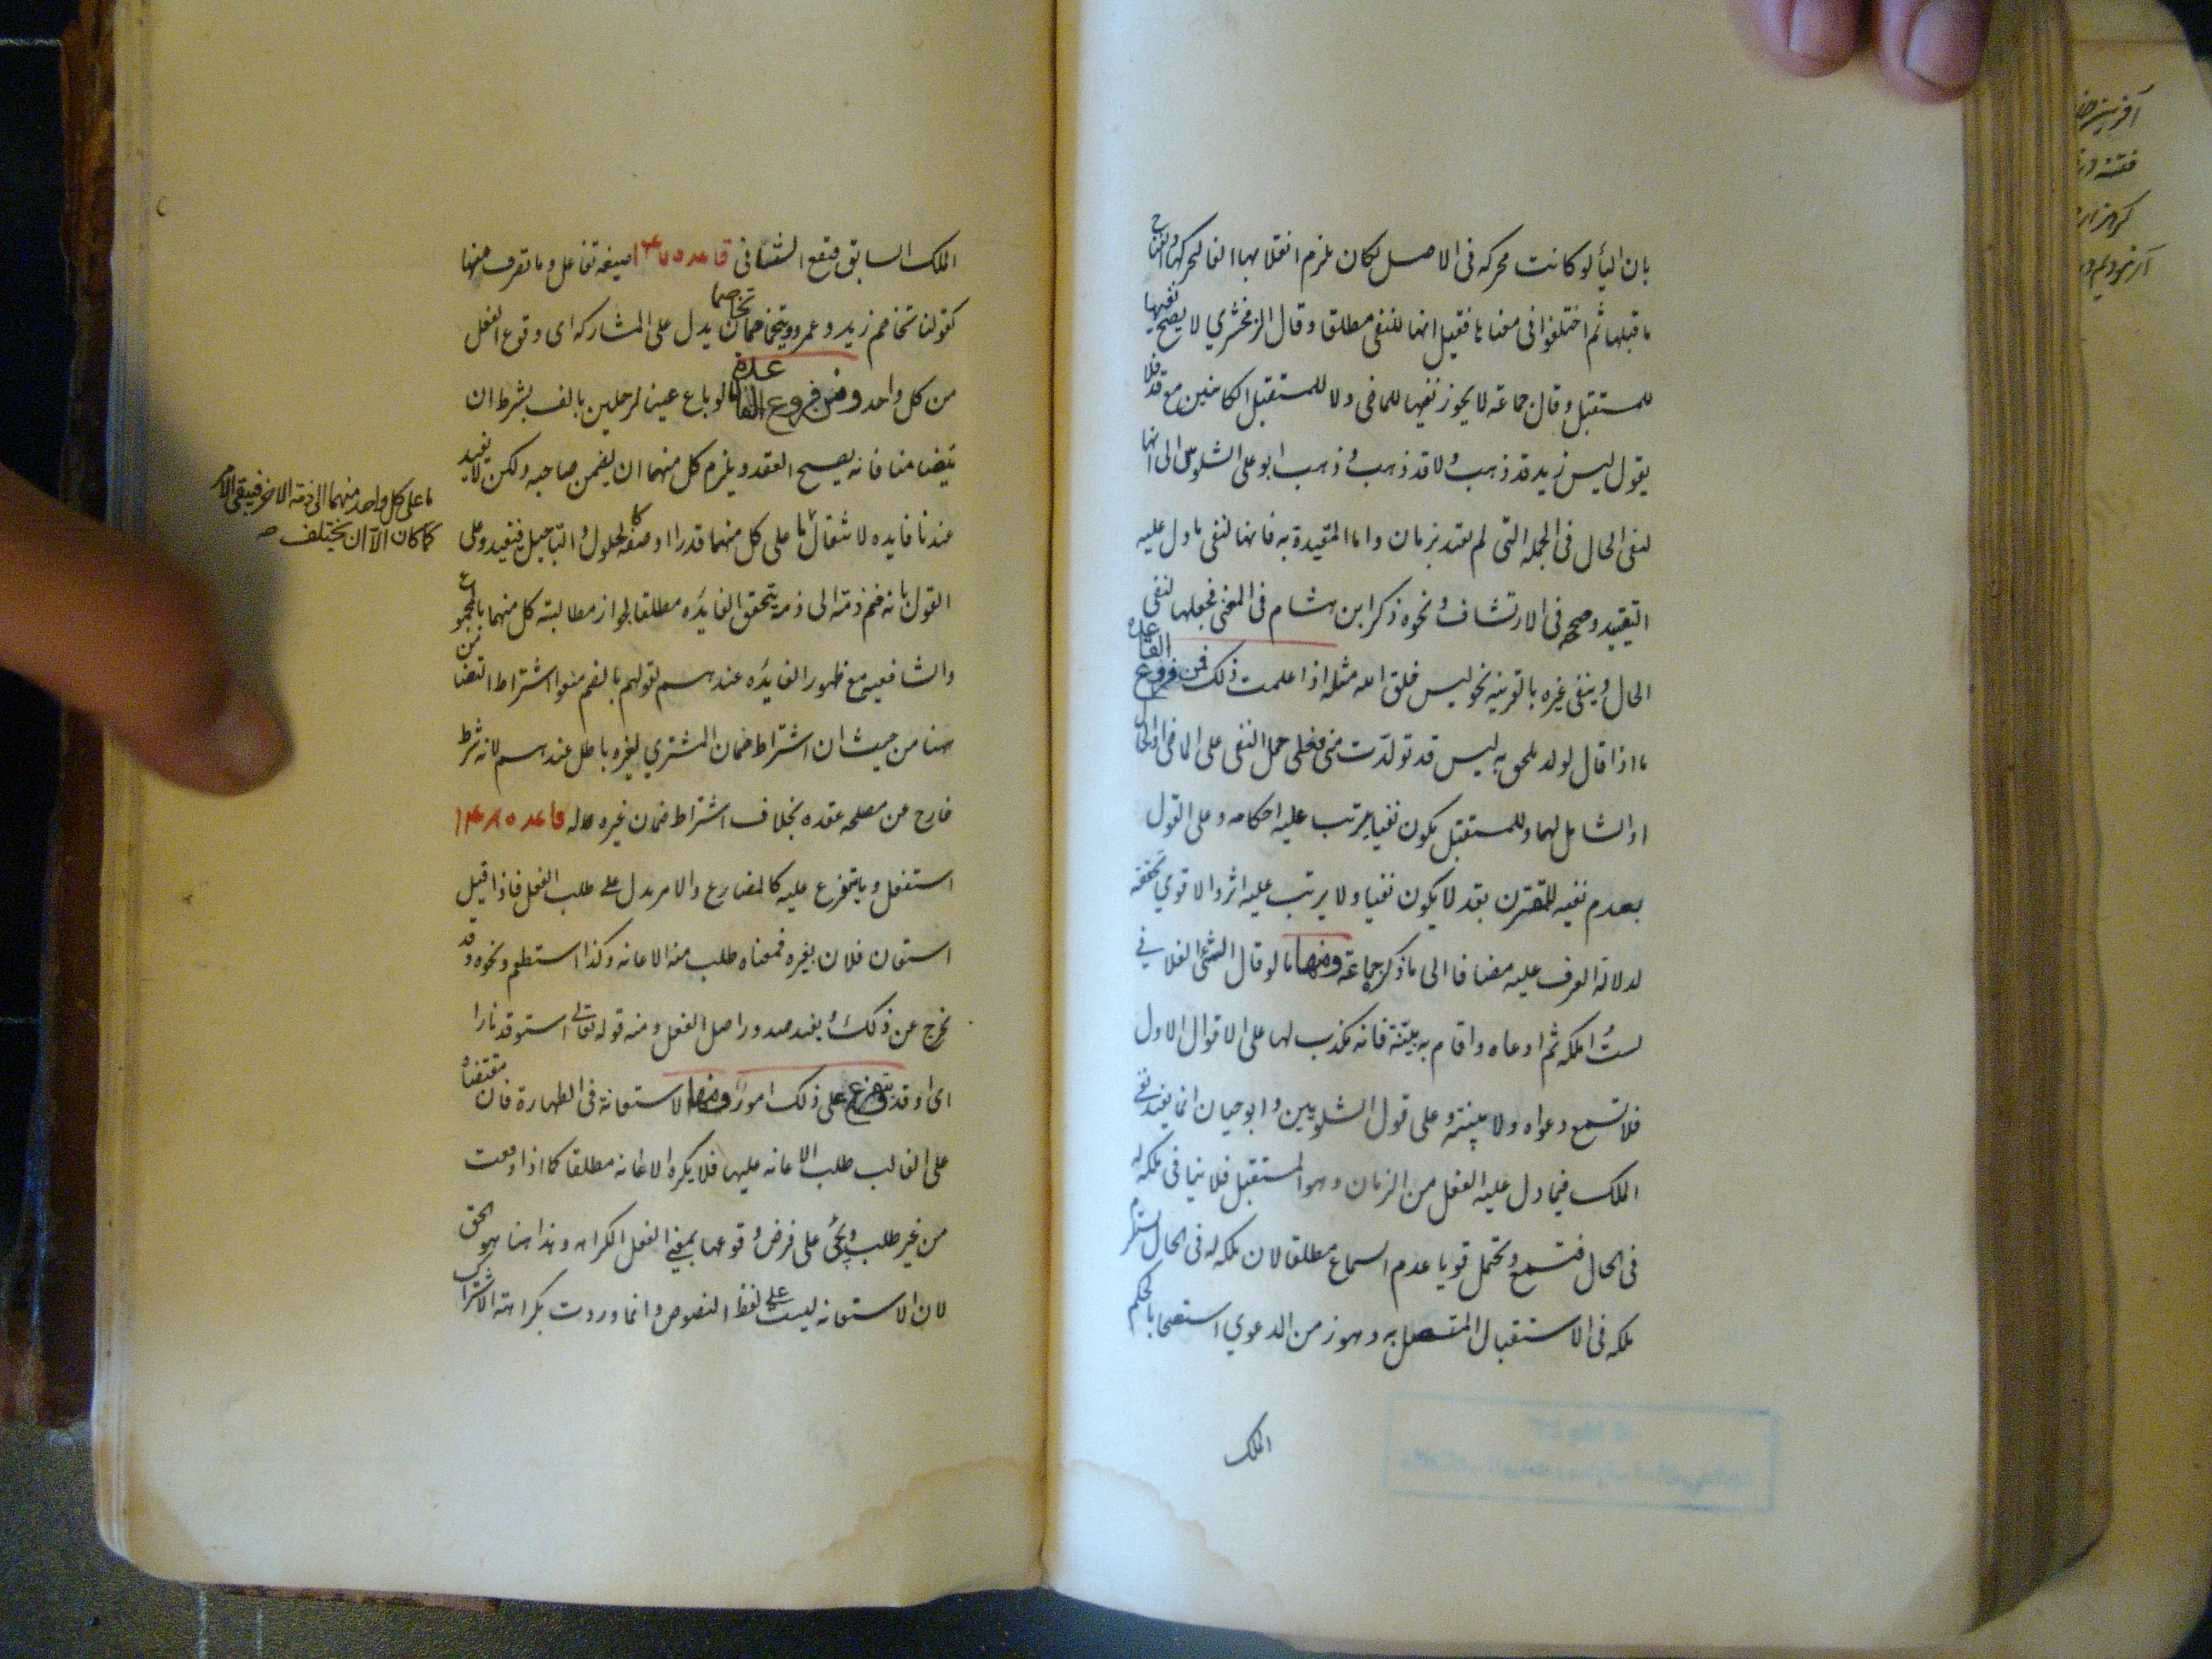 بان اليأ لو كانت محركه فى الاصل لكان يلزم انقلابها الفا لتحركها وانفتاح
ما قبلها ثم اختلفوا فى معناها فقيل انها للنفى مطلقا وقال الزمخشري لا يصح نفيها
للمستقبل وقال جماعه لا يجوز نفيها للماضى ولا للمستقبل الكائنين مع قد فلا
يقول ليس زيد قد ذهب ولا قد ذهب وذهب ابو على الشلوبين الى انها
لنفى الحال فى الجمله التى لم تقيد بزمان واما المقيدة به فانها لنفى ما دل عليه
التقييد وصححه فى الارتشاف ونحوه ذكر ابن هشام فى المغنى فجعلها لنفى
الحال وينفى غيره بالقرينه نحو ليس خلق الله مثله اذا علمت ذلك فمن فروع القاعدة
ما اذا قال لولد ملحق به ليس قد تولدت منى فعلى حمل النفى على الماضى او الحال
او الشامل لهما وللمستقبل يكون نفيا يترتب عليه احكامه وعلى القول
بعدم نفيه للمقترن بقد لا يكون نفيا ولا يرتب عليه اثر والاقوي تحققه
لدلالة العرف عليه مضافا الى ما ذكر جماعة ومنها ما لو قال الشئ الفلانى
لستُ املكه ثم ادعاه واقام به بيّنة فانه مكذب لها على الاقوال الاول
فلا تسمع دعواه ولا بينته وعلى قول الشلوبين وابو حيان انما يفيد نفى
الملك فيما دل عليه الفعل من الزمان وهو المستقبل فلا ينافى ملكه له
فى الحال فتسمع ويحتمل قويا عدم السماع مطلقا لان ملكه له فى الحال يستلزم
ملكه فى الاستقبال المتصل به وهو زمن الدعوي استصحابا لحكم
الملك
الملك السابق فيقع التنافى قاعده ۱۴۷ صيغه تفاعل وما تصرف منها
كقولنا تخاصم زيد وعمرو ويتخاصمان تخاصما يدل على المشاركه اى وقوع الفعل
من كل واحد ومن فروع القاعدة ما لو باع عينا لرجلين بالف بشرط ان
يتضامنا فانه يصح العقد ويلزم كل منهما ان يضمن صاحبه ولكن لا يفيد
عندنا فايده لانتقال ما على كل منهما
ما على كل واحد منهما الى ذمة الاخر فيبقى الامر
كما كان الا ان يختلف صح
القول بانه ضم ذمة الى ذمه يتحقق الفايده مطلقا لجواز مطالبة كل منهما بالمجموع
والشافعيه مع ظهور الفايده عندهم لقولهم بالضم منعوا اشتراط التضامن
هنا من حيث ان اشتراط ضمان المشتري لغيره باطل عندهم لانه شرط
خارج عن مصلحه عقده بخلاف اشتراط ضمان غيره له قاعده ۱۴۸
استفعل وما يتفرع عليه كالمضارع والامر يدل على طلب الفعل فاذا قيل
استعان فلان بغيره فمعناه طلب منه الاعانه وكذا استطعم ونحوه وقد
يخرج عن ذلك ويفيد صدور اصل الفعل ومنه قوله تعالى استوقد نارا
اى اوقد يتفرع على ذلك امور ومنها الاستعانة فى الطهارة فان مقتضاه
على الغالب طلب الاعانه عليها فلا يكره الاعانه مطلقا كما اذا وقعت
من غير طلب على فرض وقوعها بمعنى الفعل الكراهه وهذا هنا هو الحق
لان الاستعانه ليست على لفظ النصوص وانما وردت بكراهته الاشتراك